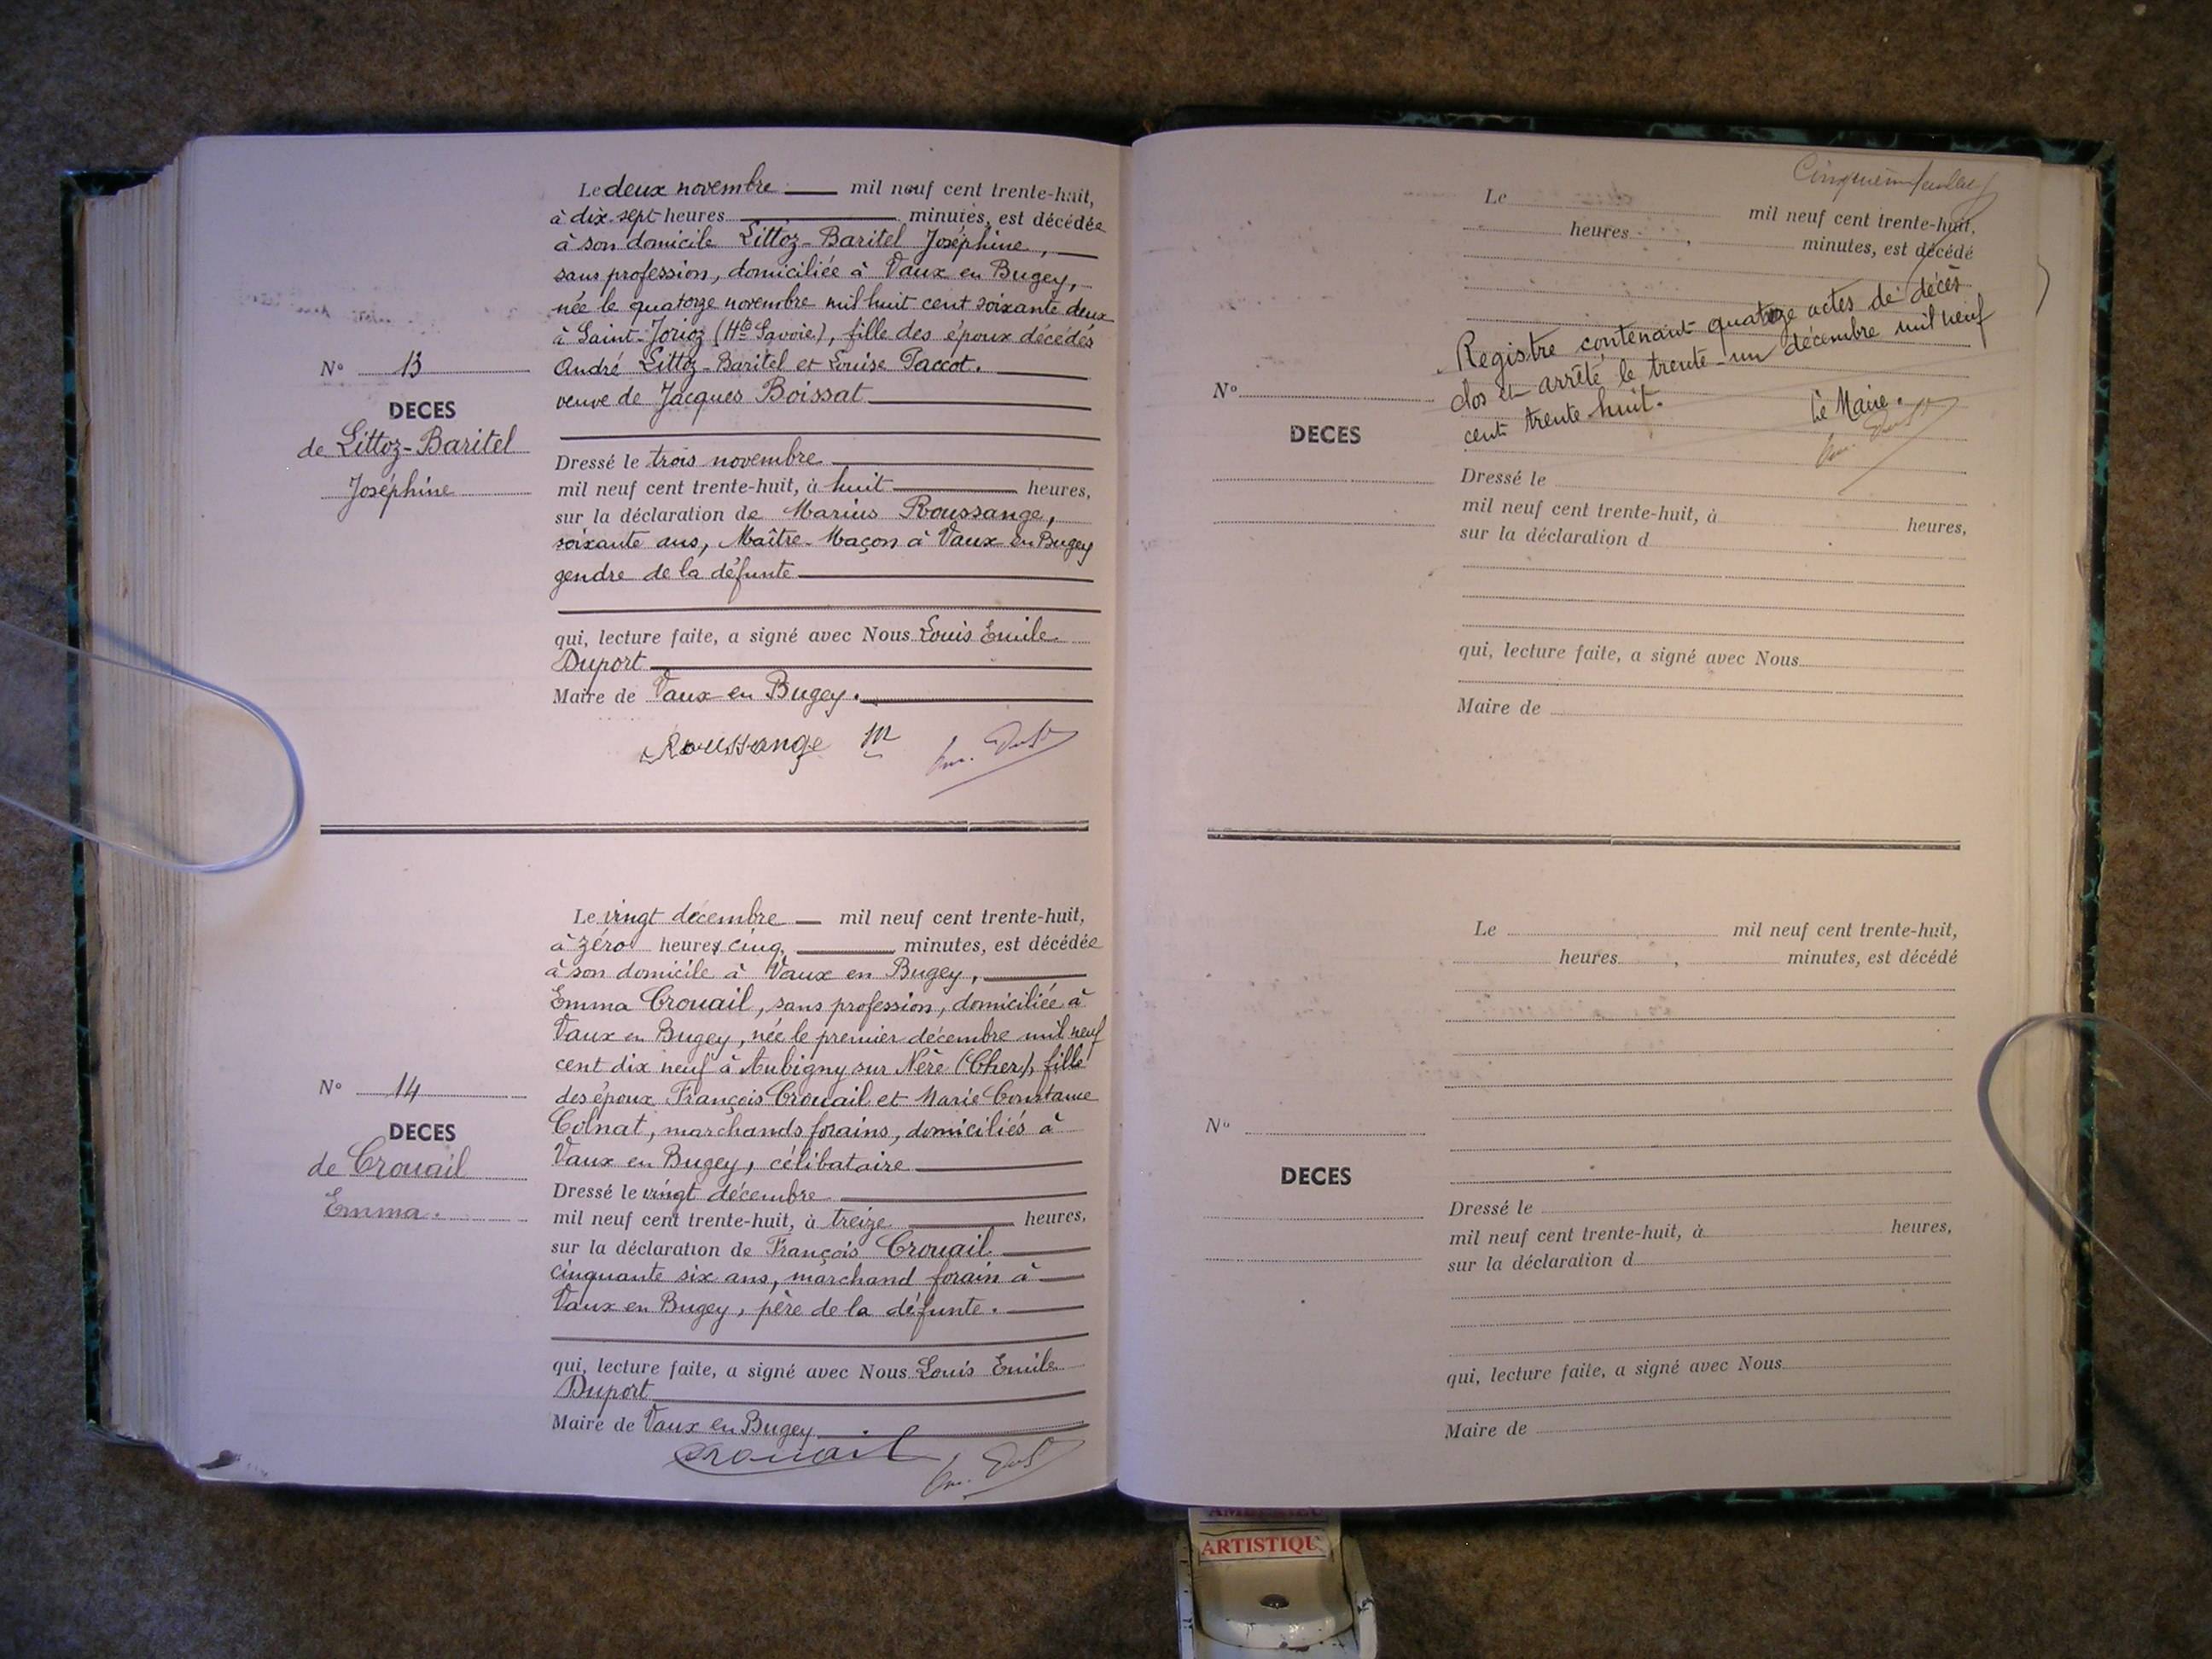 Le deux novembre mil neuf cent trente-huit,
à dix-sept heures minutes, est décédée
à son domicile Littoz-Baritel Joséphine,
sans profession, domiciliée à Vaux en Bugey,
née le quatorze novembre mil huit cent soixante deux
à Saint-Jorioz (Hte Savoie), fille des époux décédés
André Littoz-Baritel et Louise Paccot.
veuve de Jacques Boissat
N° 13
DECES
de Littoz-Baritel
Joséphine
Dressé le trois novembre
mil neuf cent trente-huit, à huit heures,
sur la déclaration de Marius Roussange,
soixante ans, Maître-Maçon à Vaux en Bugey
gendre de la défunte
qui, lecture faite, a signé avec Nous Louis Emile
Duport
Maire de Vaux en Bugey.
Roussange M
Le vingt décembre mil neuf cent trente-huit,
à zéro heures cinq minutes, est décédée
à son domicile à Vaux en Bugey,
Emma Crouail, sans profession, domiciliée à
Vaux en Bugey, née le premier décembre mil neuf
cent dix neuf à Aubigny sur Nère (Cher), fille
des époux François Crouail et Marie Constance
Colnat, marchands forains, domiciliés à
Vaux en Bugey, célibataire
N° 14
DECES
de Crouail
Emma.
Dressé le vingt décembre
mil neuf cent trente-huit, à treize heures,
sur la déclaration de François Crouail
cinquante six ans, marchand forain à
Vaux en Bugey, père de la défunte.
qui, lecture faite, a signé avec Nous Louis Emile
Duport
Maire de Vaux en Bugey
Crouail
Le mil neuf cent trente-huit,
heures , minutes, est décédé
Registre contenant quatorze actes de décès
clos et arrêté le trente-un décembre mil neuf
cent trente-huit.
Le Maire.
N°
DECES
Dressé le
mil neuf cent trente-huit, à heures,
sur la déclaration d
qui, lecture faite, a signé avec Nous
Maire de
Le mil neuf cent trente-huit,
heures , minutes, est décédé
N°
DECES
Dressé le
mil neuf cent trente-huit, à heures,
sur la déclaration d
qui, lecture faite, a signé avec Nous
Maire de
ARTISTIQU